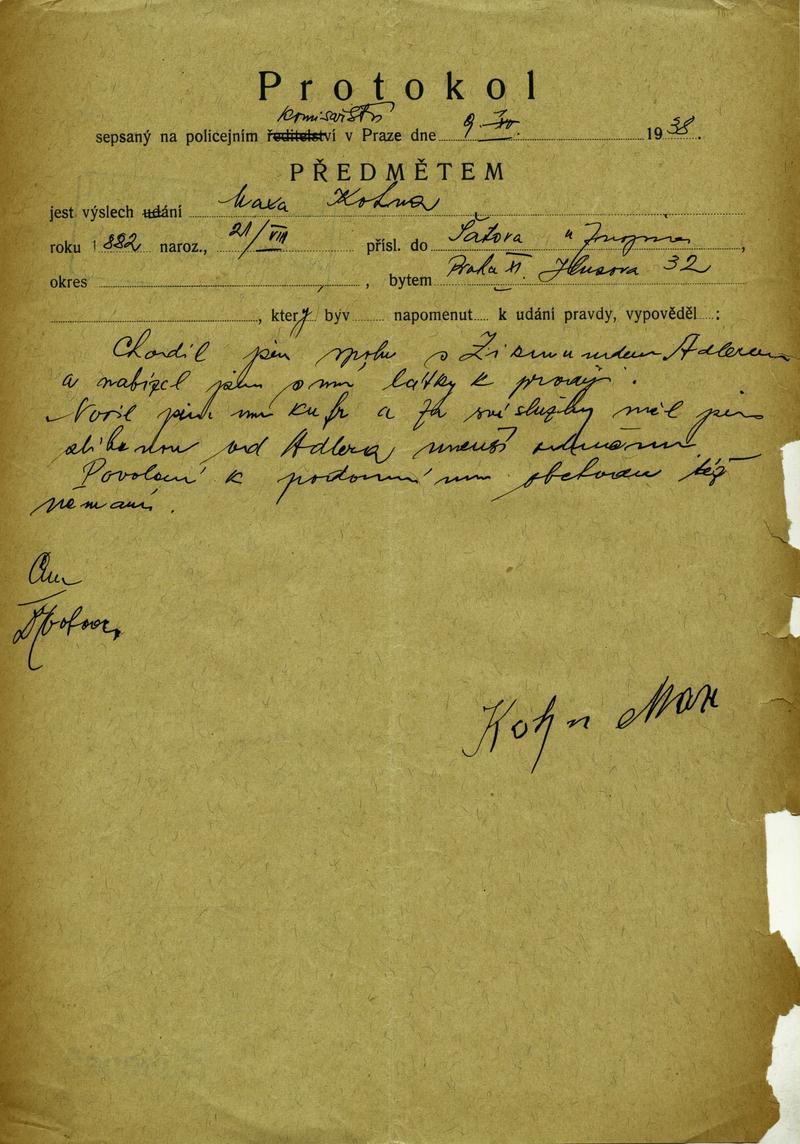 Protokol
komisařství
sepsaný na policejním ředitelství v Praze dne 9. 1938.
PŘEDMĚTEM
jest výslech udání Maxa Kohna
roku 1882 naroz., 21/VIII přísl. do Šatova u Znojma,
okres , bytem Praha XI Husova 32
, který byv napomenut k udání pravdy, vypověděl :
Chodil jsem spolu s Zikmundem Adlerem
a nabízel jsem s ním látky k prodeji.
Nosil jsem mu kufr a za své služby měl jsem
slíbenou od Adlera menší odměnu.
Povolení k podomnímu obchodu též
nemám.
Kohn Max